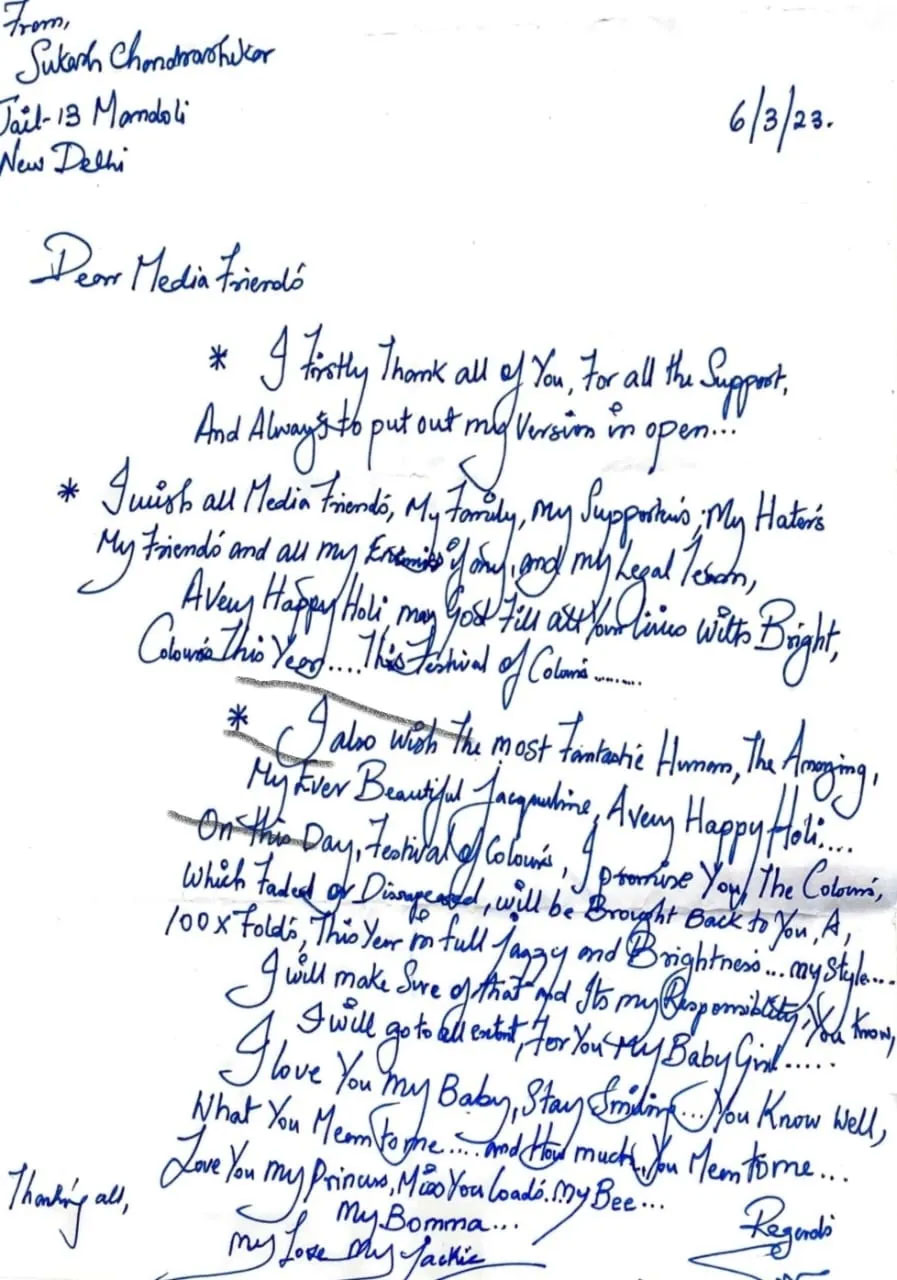 From,
Sukash Chandrashekar
Jail-13 Mandoli
New Delhi
6/3/23.
Dear Media Friends
* I Firstly Thank all of You, For all the Support,
And Always to put out my Version in open...
* I wish all Media Friends, My Family, My Supporters, My Haters
My Friends and all my Enemies if any, and my Legal Team,
A Very Happy Holi, may God Fill all Your lives with Bright,
Colours This Year.... This Festival of Colours.........
* I also wish the most Fantastic Human, The Amazing,
My Ever Beautiful Jacqueline, A Very Happy Holi....
On this Day, Festival of Colours, I promise You, The Colours,
Which Faded or Disapeared, will be Brought Back to You, A,
100x Folds, This Year in full Jazzy and Brightness... my Style...
I will make Sure of that and Its my Responsiblity, You Know,
I will go to all extent, For You My Baby Girl.....
I love You my Baby, Stay Smiling... You Know Well,
What You Mean to me.... and How much You Mean to me...
Love You my Princess, Miss You loads. My Bee...
My Bomma...
My Love My Jackie
Thanking all,
Regards